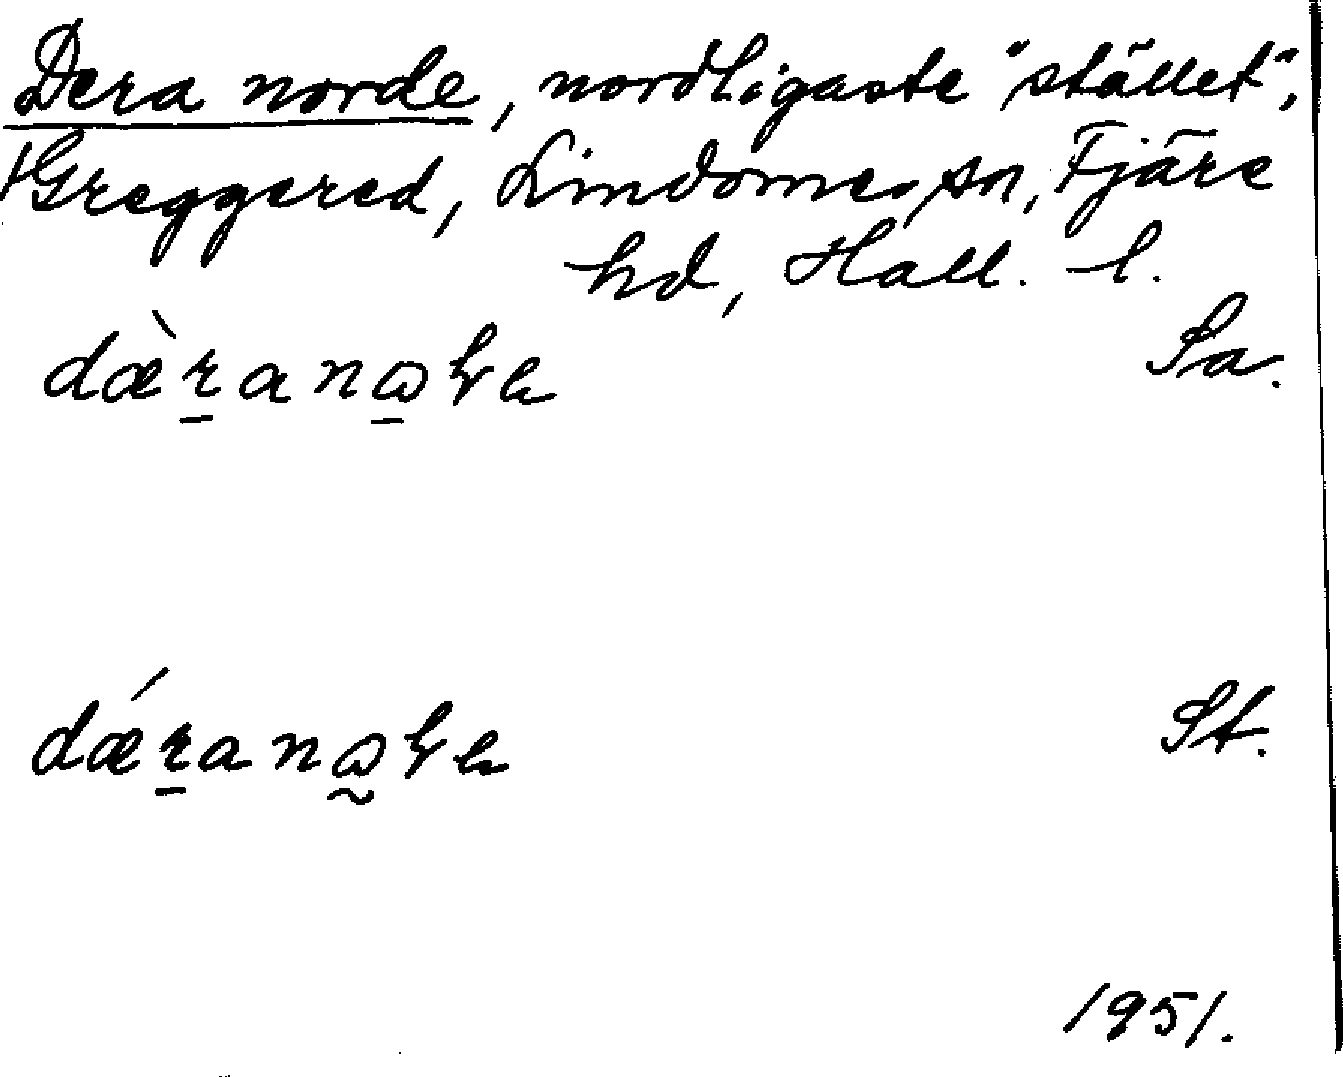 Dera norde, nordligaste "stället",
Greggered, Lindome sn, Fjäre
hd, Hall. l.
Sa.
St.
1951.